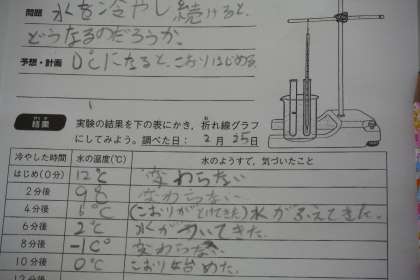 問題 水を冷やし続けると、
どうなるのだろうか。
予想・計画 0℃になると、こおりはじめる
結果 実験の結果を下の表にかき、折れ線グラフ
にしてみよう。調べた日： 2月 25日
冷やした時間 水の温度(℃) 水のようすで、気づいたこと
はじめ(0分) 12℃ 変わらない
2分後 9℃ 変わらない
4分後 6℃ (こおりがとけてきた)水がふえてきた。
6分後 2℃ 水がついてきた。
8分後 -1℃ 変わらない
10分後 0℃ こおり始めた。
12分後